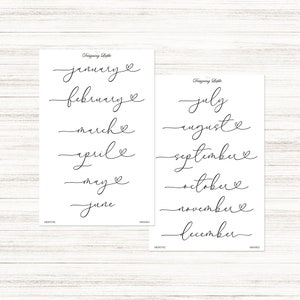 Designing Little
january
february
march
april
may
june
Designing Little
july
august
september
october
november
december